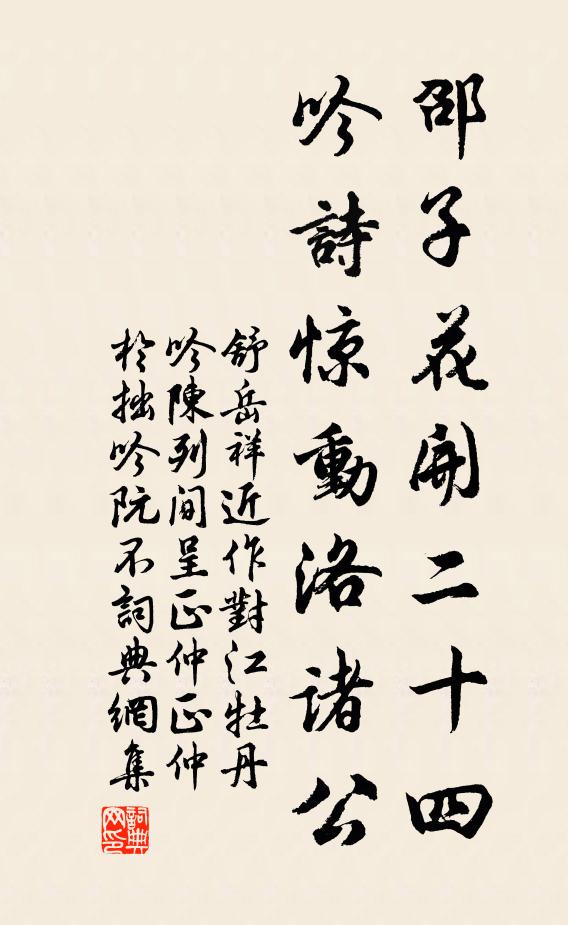 邵子花開二十四
吟詩惊動洛諸公
舒岳祥近作對江牡丹
吟陳列間呈正仲正仲
於拙吟阮不詞典網集
詞典網印